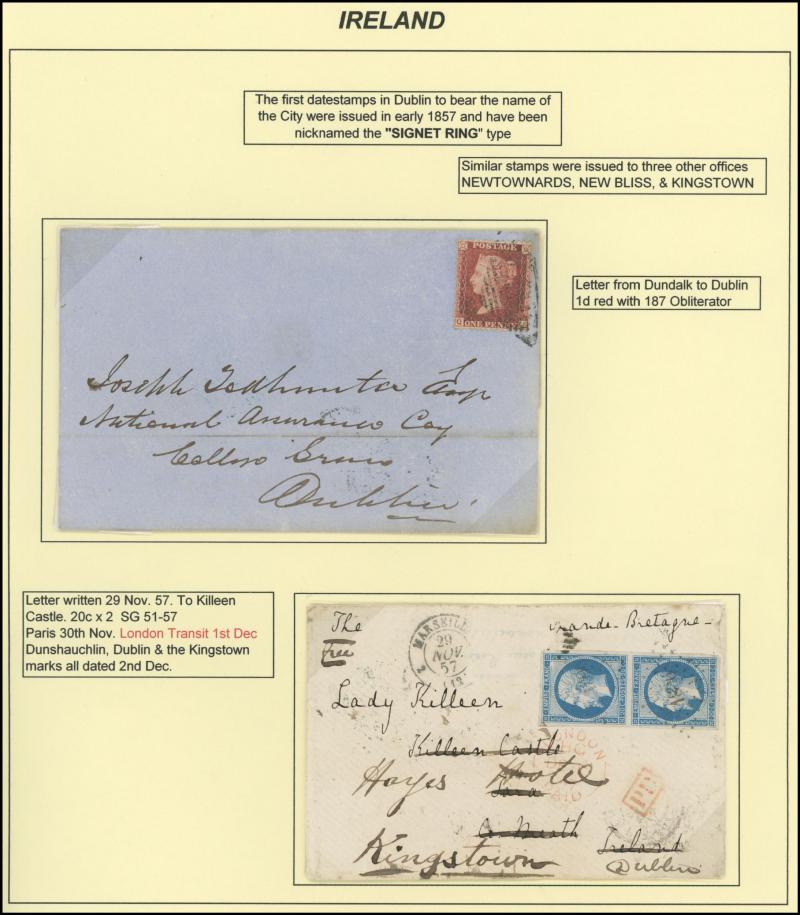 IRELAND
The first datestamps in Dublin to bear the name of
the City were issued in early 1857 and have been
nicknamed the "SIGNET RING" type
Similar stamps were issued to three other offices
NEWTOWNARDS, NEW BLISS, & KINGSTOWN
POSTAGE
ONE PENNY
Letter from Dundalk to Dublin
1d red with 187 Obliterator
Joseph Todhunter Esqr
National Assurance Coy
College Green
Dublin
Letter written 29 Nov. 57. To Killeen
Castle. 20c x 2 SG 51-57
Paris 30th Nov. London Transit 1st Dec
Dunshauchlin, Dublin & the Kingstown
marks all dated 2nd Dec.
The
free
MARSEILLE
29
NOV.
57
Grande-Bretagne-
EMPIRE FRANC
EMPIRE FRANC
Lady Killeen
Killeen Castle
LONDON
Hayes Hotel
Tara
PAID
PD
Co Meath
Kingstown
Ireland
Dublin